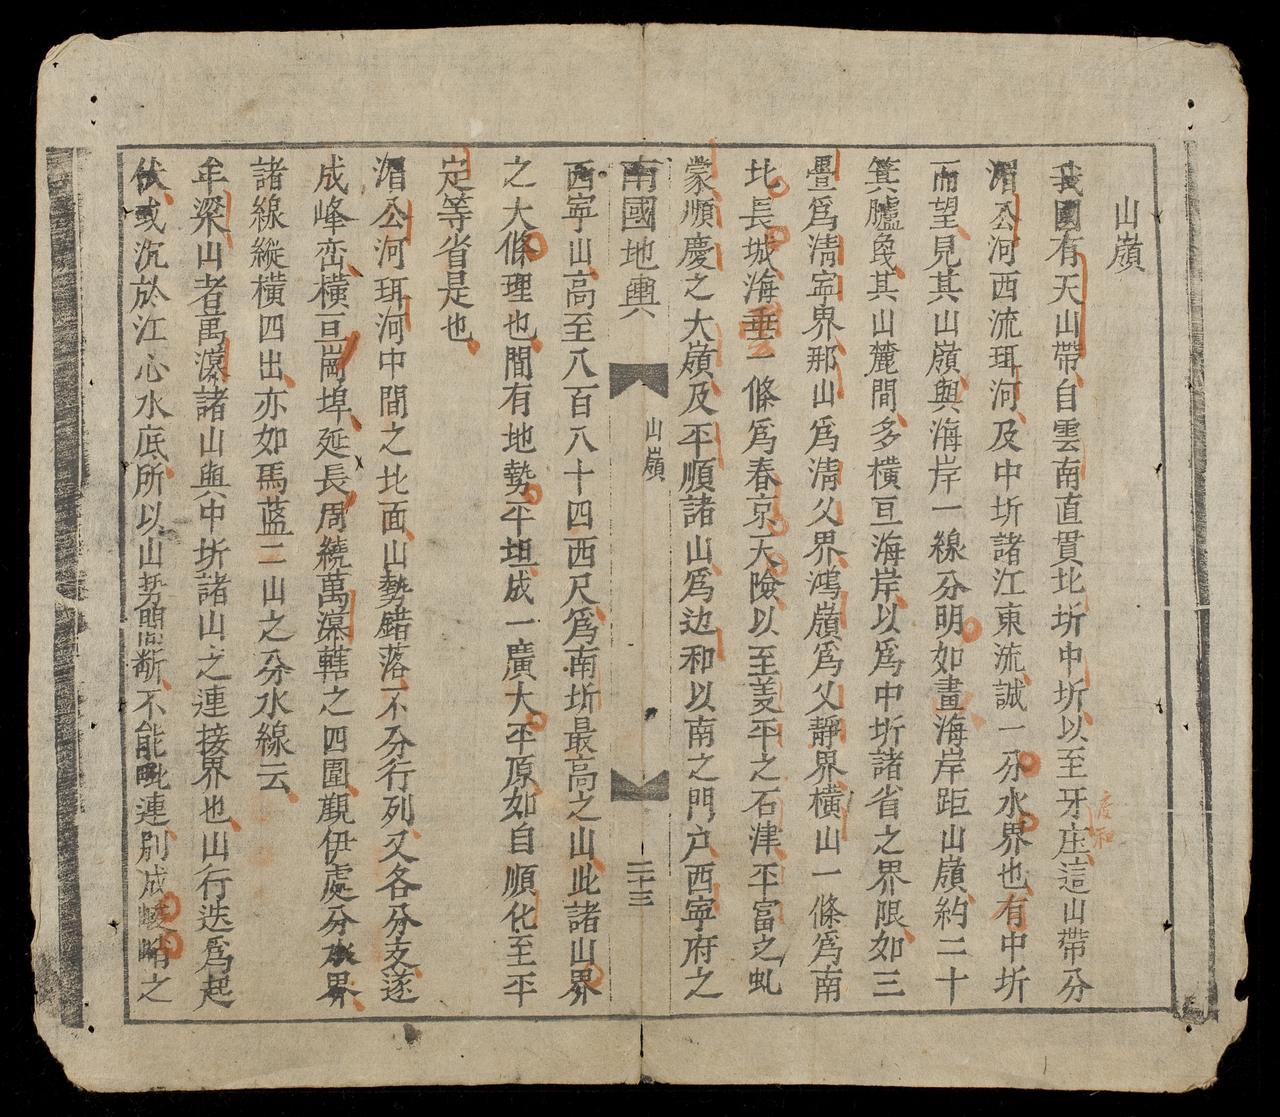 山嶺
我國有天山帶自雲南直貫北圻中圻以至牙庄這山帶分
湄公河西流珥河及中圻諸江東流誠一分水界也有中圻
而望見其山嶺與海岸一線分明如畫海岸距山嶺約二十
箕臚㒵其山麓間多橫亘海岸以爲中圻諸省之界限如三
疊爲淸寜界那山爲淸乂界鴻嶺爲乂靜界橫山一條爲南
北長城海垂一條爲春京天險以至羙平之石津平富之虬
蒙順慶之大嶺及平順諸山爲边和以南之門户西寜府之
南國地輿
山嶺
二十三
西寜山高至八百八十四西尺爲南圻最高之山此諸山界
之大條理也間有地勢平坦成一廣大平原如自順化至平
定等省是也
湄公河珥河中間之北面山勢錯落不分行列又各分支遂
成峰巒橫亘崗埠延長周繞萬瀑轄之四圍觀伊處分水界
諸線縱橫四出亦如馬藍二山之分水線云
年梁山者萬瀑諸山與中圻諸山之連接界也山行迭爲起
伏或沉於江心水底所以山勢間斷不能毗連別成峻峭之
度和